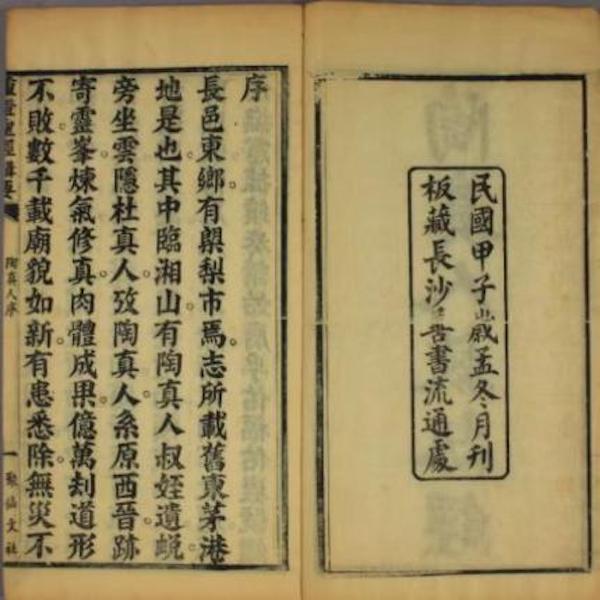 民國甲子歲孟冬月刊
板藏長沙善書流通處
序
長邑東鄉有㮾梨市焉。志所載舊東茅港
地是也。其中臨湘山有陶真人叔姪遺蛻。
旁坐雲隱杜真人。攷陶真人系原西晉。跡
寄靈峯。煉氣修真。肉體成果。億萬刦道形
不敗。數千載廟貌如新。有患悉除。無災不
陶真人序
一
聚仙文社